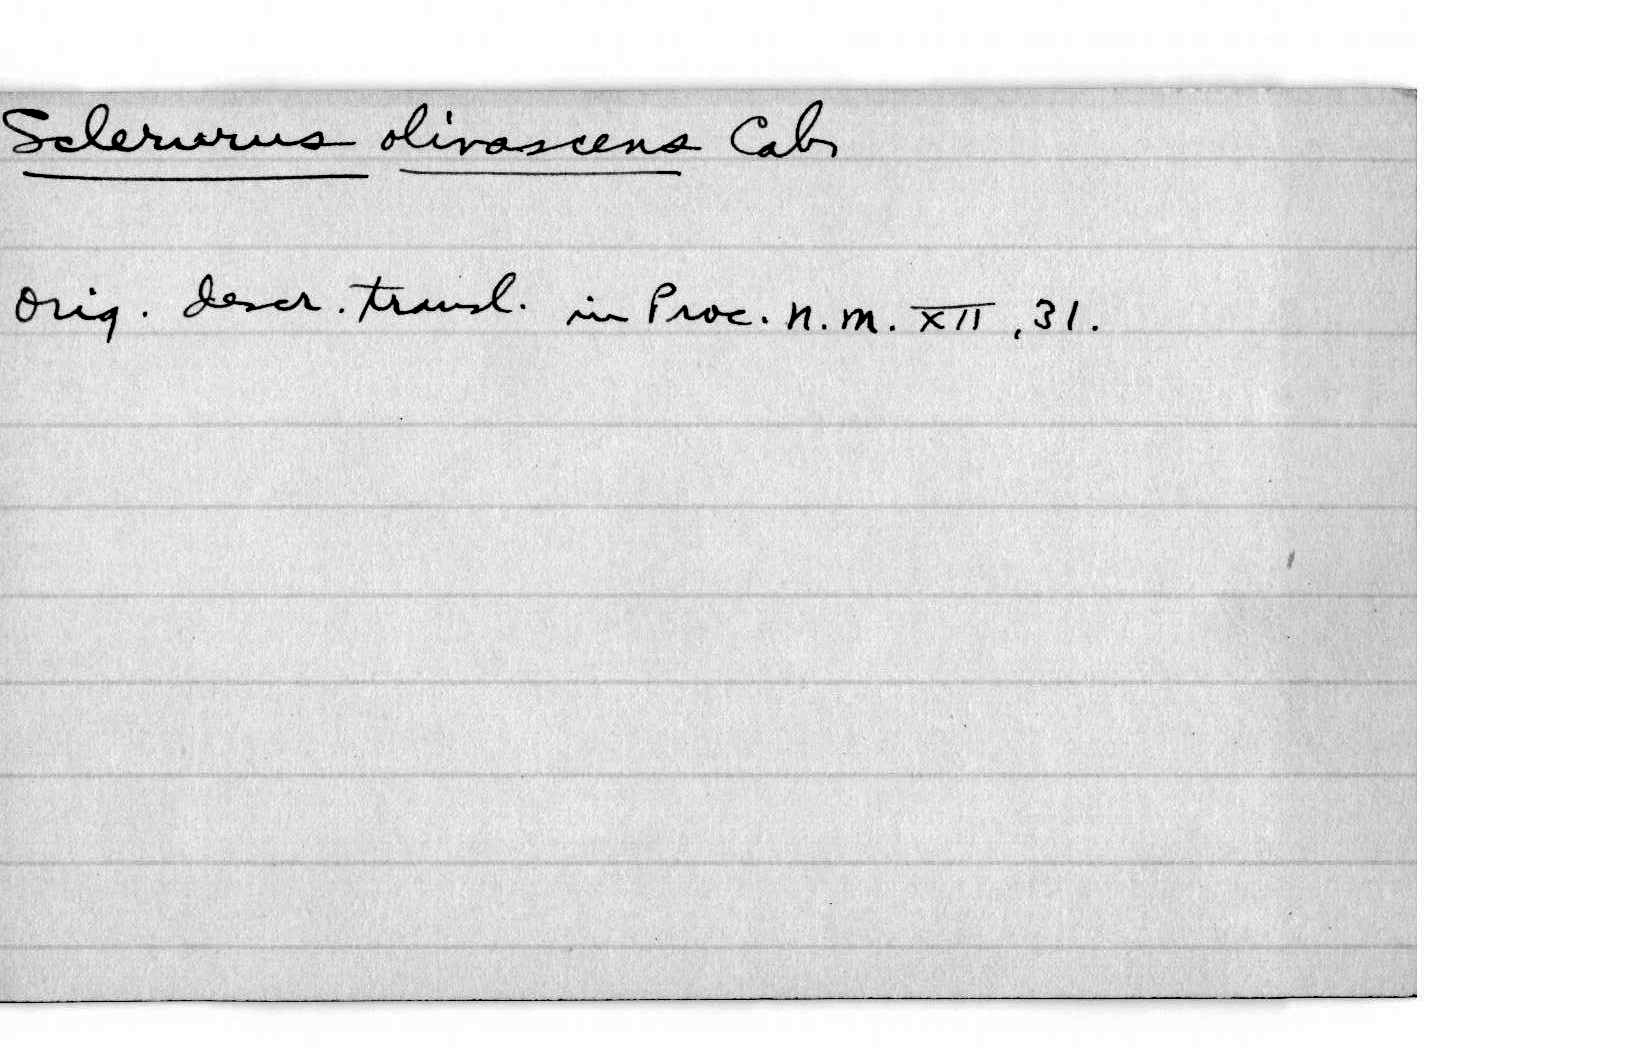 Sclerurus olivascens Cab.
Orig. descr. transl. in Proc. N.M. XII, 31.